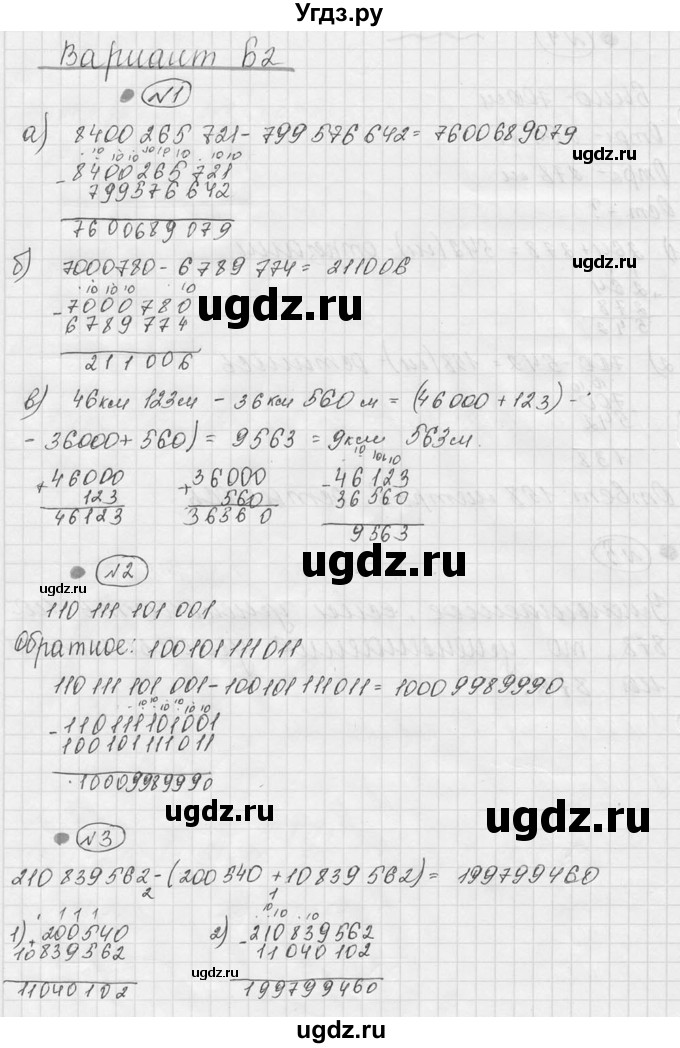 Угдз.ру
Вариант Б2
№1
а) 8400 265 721 - 799 576 642 = 7600689079
- 8400 265 721
799576 642
7600689 079
б) 7000780 - 6 789 774 = 211006
- 7000 780
6 789 774
211 006
в) 46км 123м - 36км 560 м = (46 000 + 123) -
- 36000 + 560) = 9563 = 9км 563м.
+ 46000
123
46123
+ 36000
560
36560
- 46 123
36 560
9 563
№2
110 111 101 001
Обратное: 100101111011
110 111 101 001 - 100101 111 011 = 1000 9989990
- 110111101001
100101111 011
10009989990
№3
210 839 562 - (200 540 + 10 839 562) = 199799460
2 1
1) + 200540
10 839562
11040 102
2) - 210839562
11 040 102
199799460
ugdz.ru
ugdz.ru
ugdz.ru
ugdz.ru
ugdz.ru
ugdz.ru
ugdz.ru
ugdz.ru
ugdz.ru
ugdz.ru